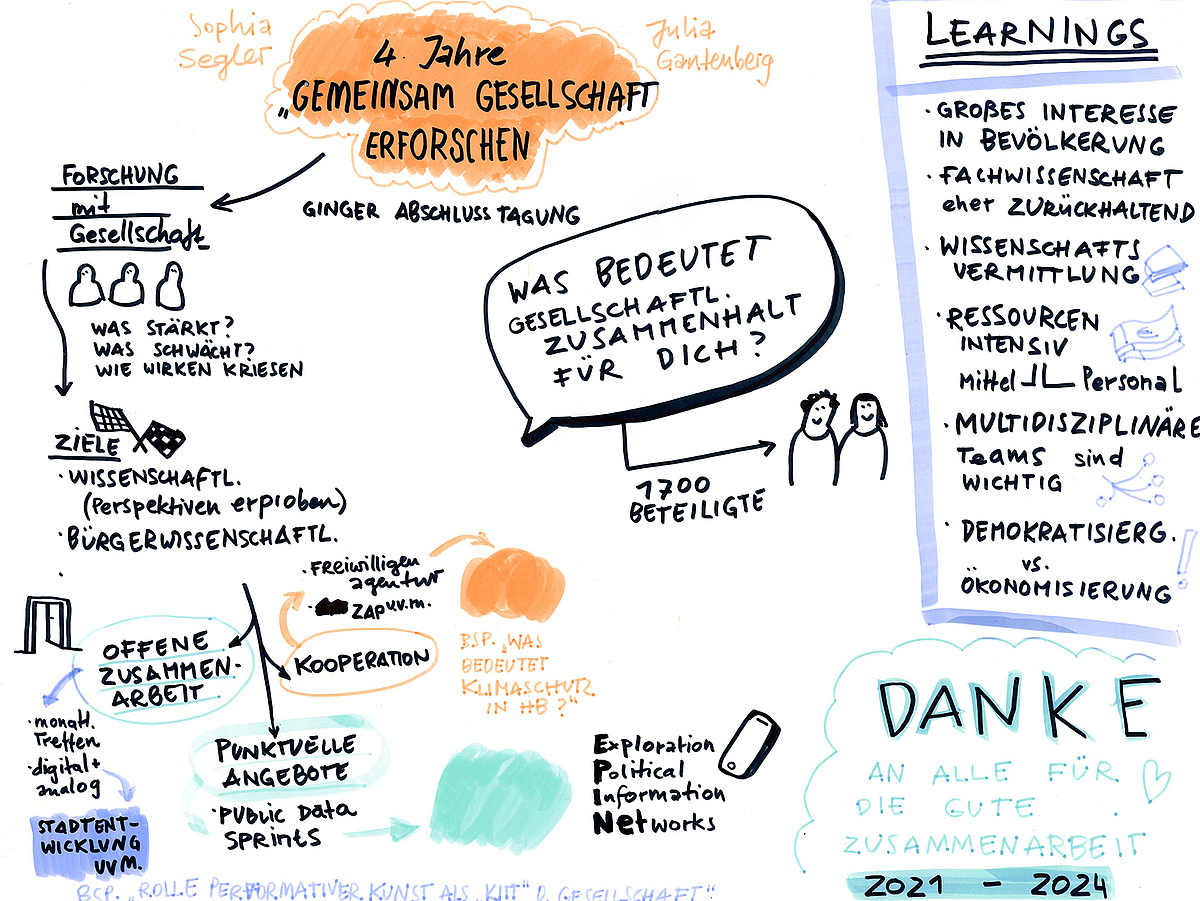 Sophia
Segler
4 Jahre
„GEMEINSAM GESELLSCHAFT
ERFORSCHEN
Julia
Gantenberg
GINGER ABSCHLUSSTAGUNG
FORSCHUNG
mit
Gesellschaft
WAS STÄRKT?
WAS SCHWÄCHT?
WIE WIRKEN KRIESEN
ZIELE
· WISSENSCHAFTL.
(Perspektiven erproben)
· BÜRGERWISSENSCHAFTL.
WAS BEDEUTET
GESELLSCHAFTL.
ZUSAMMENHALT
FÜR DICH?
1700
BETEILIGTE
OFFENE
ZUSAMMEN-
ARBEIT
· monatl.
Treffen
· digital +
analog
STADTENT-
WICKLUNG
UVM.
KOOPERATION
· FREIWILLIGEN
agentur
· ZAP u.v.m.
BSP. „WAS
BEDEUTET
KLIMASCHUTZ
IN HB?"
PUNKTUELLE
ANGEBOTE
· PUBLIC DATA
SPRINTS
BSP. „ROLLE PERFORMATIVER KUNST ALS „KITT" D. GESELLSCHAFT"
Exploration
Political
Information
Networks
LEARNINGS
· GROẞES INTERESSE
IN BEVÖLKERUNG
· FACHWISSENSCHAFT
eher ZURÜCKHALTEND
· WISSENSCHAFTS
VERMITTLUNG
· RESSOURCEN
INTENSIV
Mittel Personal
· MULTIDISZIPLINÄRE
Teams sind
WICHTIG
· DEMOKRATISIERG.
vs.
ÖKONOMISIERUNG
!
DANKE
AN ALLE FÜR
DIE GUTE
ZUSAMMENARBEIT
2021 - 2024